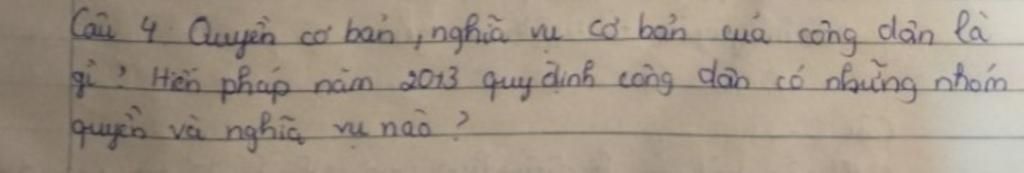 Câu 4 Quyền cơ bản, nghĩa vụ cơ bản của công dân là
gì? Hiến pháp năm 2013 quy định công dân có những nhóm
quyền và nghĩa vụ nào?